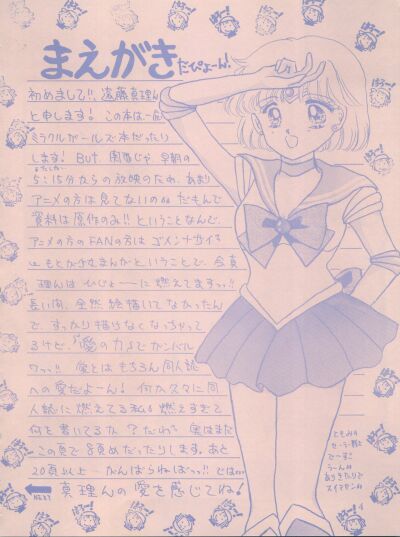 まえがき だぴょーん!
初めまして!!、遠藤真理ん
と申します! この本は一応
ミラクルガールズ本だったり
します! But、関西じゃ 早朝の
5:15分からの放映のため、あまり
アニメの方は見てないの だもんで
資料は原作のみ!! ということなんで、
アニメの方のFANの方は ゴメンナサイね
もともと少女まんがということで、今真
理んは ひじょーーに 燃えてますっっ!!
長い間、全然 絵 描いて なかったん
で、すっかり描けなくなっちゃって
るけど、「愛の力」でガンバル
ワっっ!! 愛とは もちろん 同人誌
への愛だよーん! 何かススに同
人誌に燃えてる私 燃えすぎて
何を書いてるか ? だわ 実はまだ
この頁で 8頁めだったりします。あと
20頁以上… がんばらねばっっ!! では…
真理んの 愛を感じてね!
NEXT
ともみの
セーラー戦士
でーす
うーん
ありきたりで
スイマセン